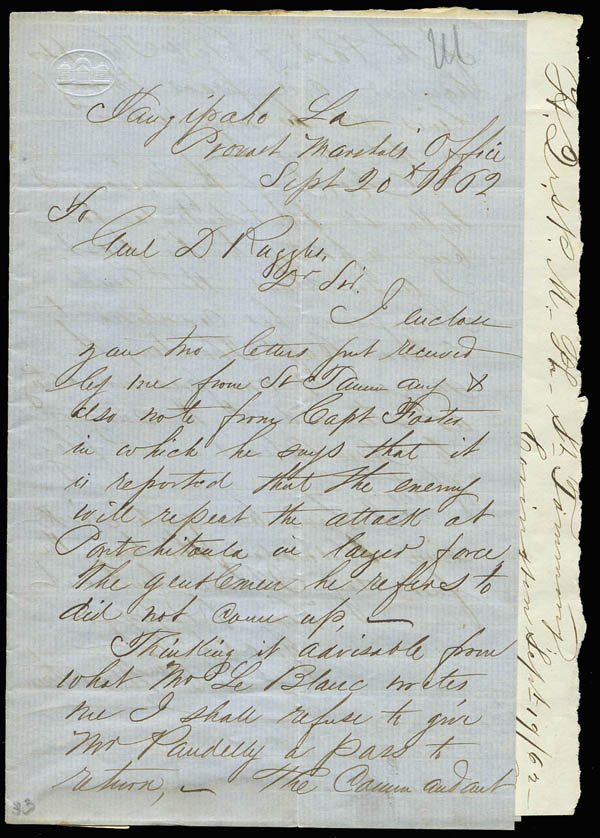 Tangipaho La
Provost Marshals Office
Sept 20th 1862
To
Genl D Ruggles,
Dr Sir.
I enclose
you two letters just received
by me from St Tammany &
also note from Capt Foster
in which he says that it
is reported that the enemy
will repeat the attack at
Pontchitoula in larger force
The gentlemen he refers to
did not come up, —
Thinking it advisable from
what Mr Le Blanc writes
me I shall refuse to give
Mr Pandelly a pass to
return, — The Commandant
33
P. M.
St. Tammany
Covington Sept 19/62